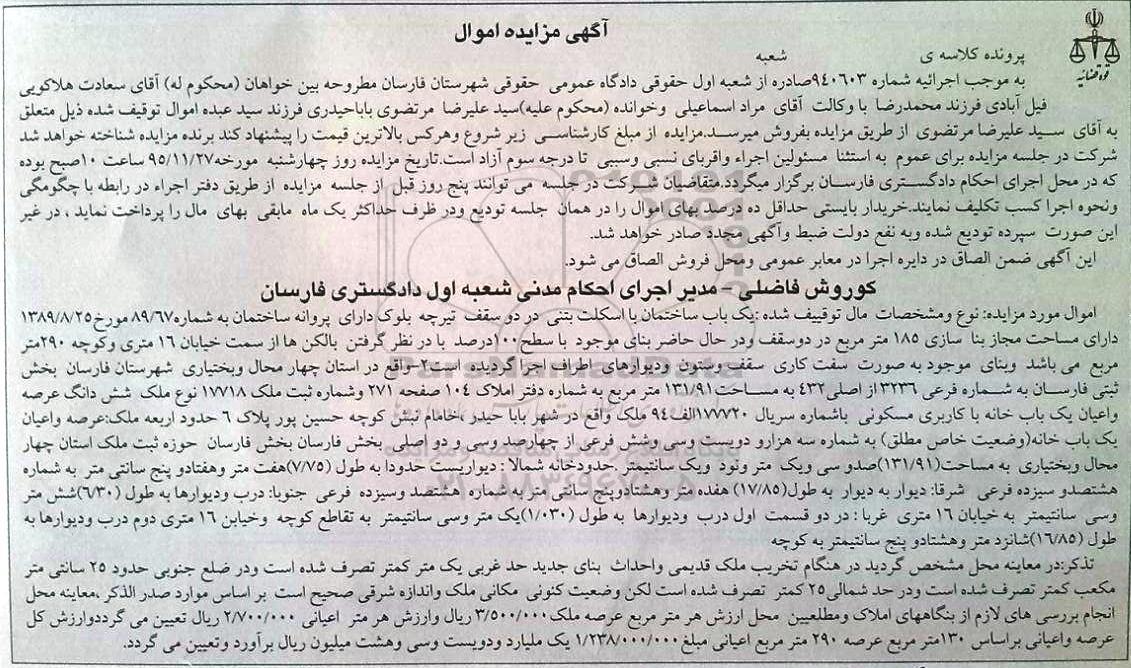 آگهی مزایده اموال
قوه قضائیه
پرونده کلاسه ی شعبه
به موجب اجرائیه شماره ۹۴۰۶۰۳صادره از شعبه اول حقوقی دادگاه عمومی حقوقی شهرستان فارسان مطروحه بین خواهان (محکوم له) آقای سعادت هلاکویی
فیل آبادی فرزند محمدرضا با وکالت آقای مراد اسماعیلی وخوانده (محکوم علیه)سید علیرضا مرتضوی باباحیدری فرزند سید عبده اموال توقیف شده ذیل متعلق
به آقای سید علیرضا مرتضوی از طریق مزایده بفروش میرسد.مزایده از مبلغ کارشناسی زیر شروع وهرکس بالاترین قیمت را پیشنهاد کند برنده مزایده شناخته خواهد شد
شرکت در جلسه مزایده برای عموم به استثنا مسئولین اجراء واقربای نسبی وسببی تا درجه سوم آزاد است.تاریخ مزایده روز چهارشنبه مورخه۹۵/۱۱/۲۷ ساعت ۱۰صبح بوده
که در محل اجرای احکام دادگستری فارسان برگزار میگردد.متقاضیان شرکت در جلسه می توانند پنج روز قبل از جلسه مزایده از طریق دفتر اجراء در رابطه با چگومگی
ونحوه اجرا کسب تکلیف نمایند.خریدار بایستی حداقل ده درصد بهای اموال را در همان جلسه تودیع ودر ظرف حداکثر یک ماه مابقی بهای مال را پرداخت نماید ، در غیر
این صورت سپرده تودیع شده وبه نفع دولت ضبط وآگهی مجدد صادر خواهد شد.
این آگهی ضمن الصاق در دایره اجرا در معابر عمومی ومحل فروش الصاق می شود.
کوروش فاضلی – مدیر اجرای احکام مدنی شعبه اول دادگستری فارسان
اموال مورد مزایده: نوع ومشخصات مال توقیف شده :یک باب ساختمان با اسکلت بتنی در دو سقف تیرچه بلوک دارای پروانه ساختمان به شماره۸۹/۶۷ مورخ۱۳۸۹/۸/۲۵
دارای مساحت مجاز بنا سازی ۱۸۵ متر مربع در دوسقف ودر حال حاضر بنای موجود با سطح۱۰۰درصد با در نظر گرفتن بالکن ها از سمت خیابان ۱۶ متری وکوچه ۲۹۰متر
مربع می باشد وبنای موجود به صورت سفت کاری سقف وستون ودیوارهای اطراف اجرا گردیده است۲-واقع در استان چهار محال وبختیاری شهرستان فارسان بخش
ثبتی فارسان به شماره فرعی ۳۲۳۶ از اصلی۴۳۲ به مساحت۱۳۱/۹۱ متر مربع به شماره دفتر املاک ۱۰۴ صفحه ۲۷۱ وشماره ثبت ملک ۱۷۷۱۸ نوع ملک شش دانگ عرصه
واعیان یک باب خانه با کاربری مسکونی باشماره سریال ۱۷۷۷۲۰الف۹۴ ملک واقع در شهر بابا حیدر ،خامام نبش کوچه حسین پور پلاک ۶ حدود اربعه ملک:عرصه واعیان
یک باب خانه(وضعیت خاص مطلق) به شماره سه هزارو دویست وسی وشش فرعی از چهارصد وسی و دو اصلی بخش فارسان بخش فارسان حوزه ثبت ملک استان چهار
محال وبختیاری به مساحت(۱۳۱/۹۱)صدو سی ویک متر ونود ویک سانتیمتر .حدودخانه شمالا : دیواریست حدودا به طول (۷/۷۵)هفت متر وهفتادو پنج سانتی متر به شماره
هشتصدو سیزده فرعی شرقا: دیوار به دیوار به طول(۱۷/۸۵) هفده متر وهشتادوپنج سانتی متر به شماره هشتصد وسیزده فرعی جنوبا: درب ودیوارها به طول (۶/۳۰)شش متر
وسی سانتیمتر به خیابان ۱۶ متری غربا : در دو قسمت اول درب ودیوارها به طول (۱/۰۳۰)یک متر وسی سانتیمتر به تقاطع کوچه وخیابن ۱۶ متری دوم درب ودیوارها به
طول (۱۶/۸۵)شانزد متر وهشتادو پنج سانتیمتر به کوچه
تذکر:در معاینه محل مشخص گردید در هنگام تخریب ملک قدیمی واحداث بنای جدید حد غربی یک متر کمتر تصرف شده است ودر ضلع جنوبی حدود ۲۵ سانتی متر
مکعب کمتر تصرف شده است ودر حد شمالی۲۵ کمتر تصرف شده است لکن وضعیت کنونی مکانی ملک واندازه شرقی صحیح است بر اساس موارد صدر الذکر ،معاینه محل
انجام بررسی های لازم از بنگاههای املاک ومطلعین محل ارزش هر متر مربع عرصه ملک۳/۵۰۰/۰۰۰ ریال وارزش هر متر اعیانی ۲/۷۰۰/۰۰۰ ریال تعیین می گرددوارزش کل
عرصه واعیانی براساس ۱۳۰متر مربع عرصه ۲۹۰ متر مربع اعیانی مبلغ ۱/۲۳۸/۰۰۰/۰۰۰ یک ملیارد ودویست وسی وهشت میلیون ریال برآورد وتعیین می گردد.